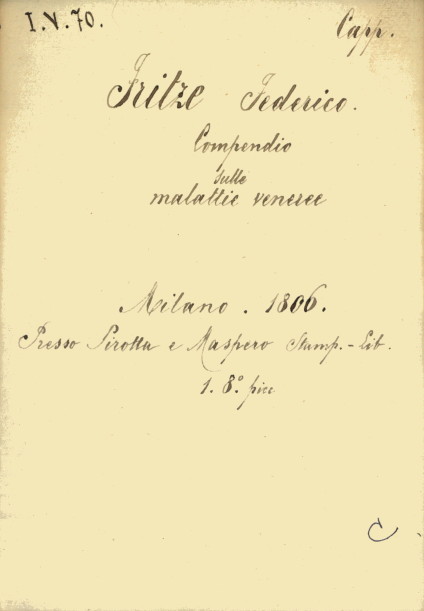 I.V.70.
Capp.
Fritze Federico.
Compendio
sulle
malattie veneree
Milano. 1806.
Presso Pirotta e Maspero Stamp.-Lib.
1. 8.° picc
C